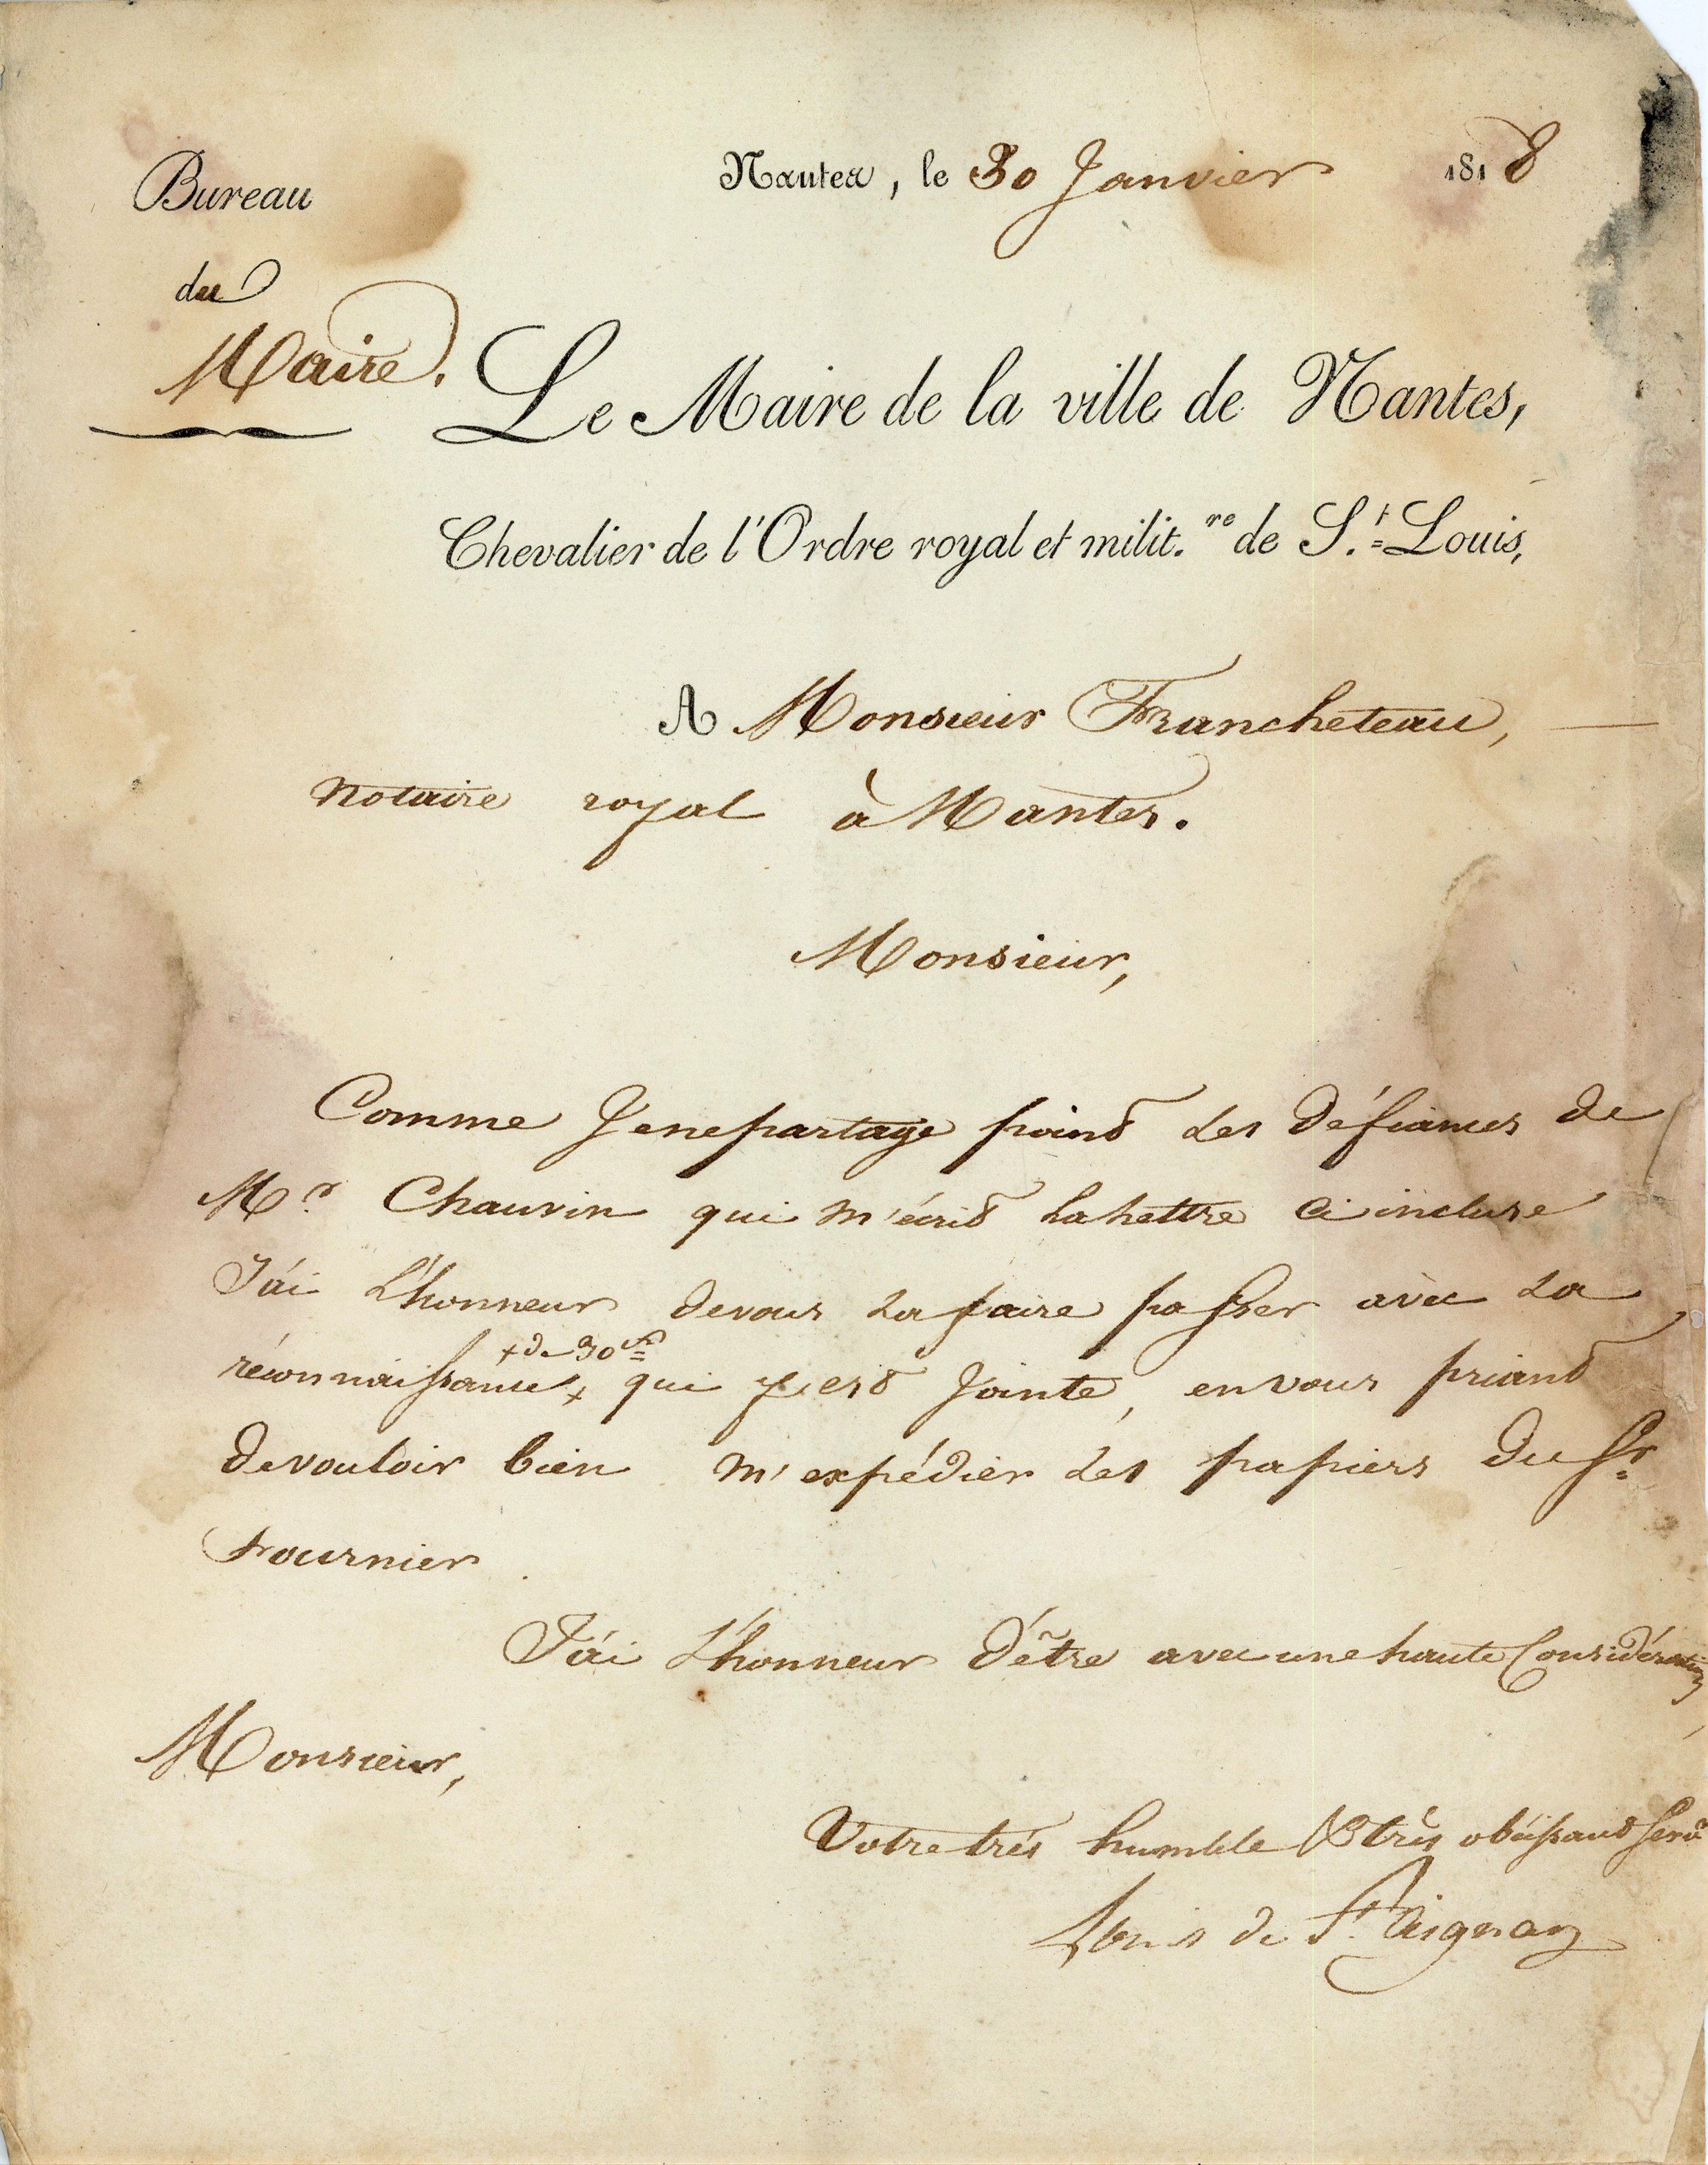 Nantes, le 30 Janvier 1818
Bureau
du
Maire.
Le Maire de la ville de Nantes,
Chevalier de l'Ordre royal et milit.re de S.t Louis,
A Monsieur Francheteau,
Notaire royal à Nantes.
Monsieur,
Comme Je ne partage point les défiances de
Mr Chauvin qui m'écrit la lettre ci incluse
J'ai L'honneur de vous la faire passer avec la
+ de 30 fr
réconnaissance + qui y est Jointe, en vous priant
de vouloir bien m'expédier les papiers du Sr
Fournier
J'ai L'honneur d'être avec une haute Considération,
Monsieur,
Votre très humble & très obéissant Servr
Louis de St. Aignan